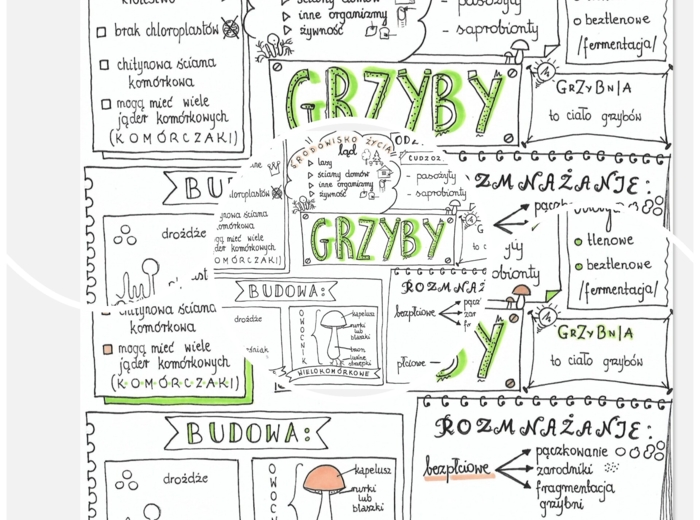 brak chloroplastów
chitynowa ściana
komórkowa
mogą mieć wiele
jąder komórkowych
(KOMÓRCZAKI)
ściany domów
inne organizmy
żywność
- pasożyty
- saprobionty
beztlenowe
/fermentacja/
GRZYBY
GRZYBNIA
to ciało grzybów
ŚRODOWISKO ŻYCIA
ląd
lasy
ściany domów
inne organizmy
żywność
CUDZOŻ
- pasożyty
- saprobionty
GRZYBY
BU
drożdże
BUDOWA:
drożdże
OWOCNIK
kapelusz
rurki
lub
blaszki
trzon
WIELOKOMÓRKOWE
ROZMNAŻ
bezpłciowe
płciowe
ZMNAŻANIE:
tlenowe
beztlenowe
/fermentacja/
GRZYBNIA
to ciało grzybów
Y
chitynowa ściana
komórkowa
mogą mieć wiele
jąder komórkowych
(KOMÓRCZAKI)
BUDOWA:
drożdże
OWOC
kapelusz
rurki
lub
blaszki
ROZMNAŻANIE:
bezpłciowe
pączkowanie
zarodniki
fragmentacja
grzybni